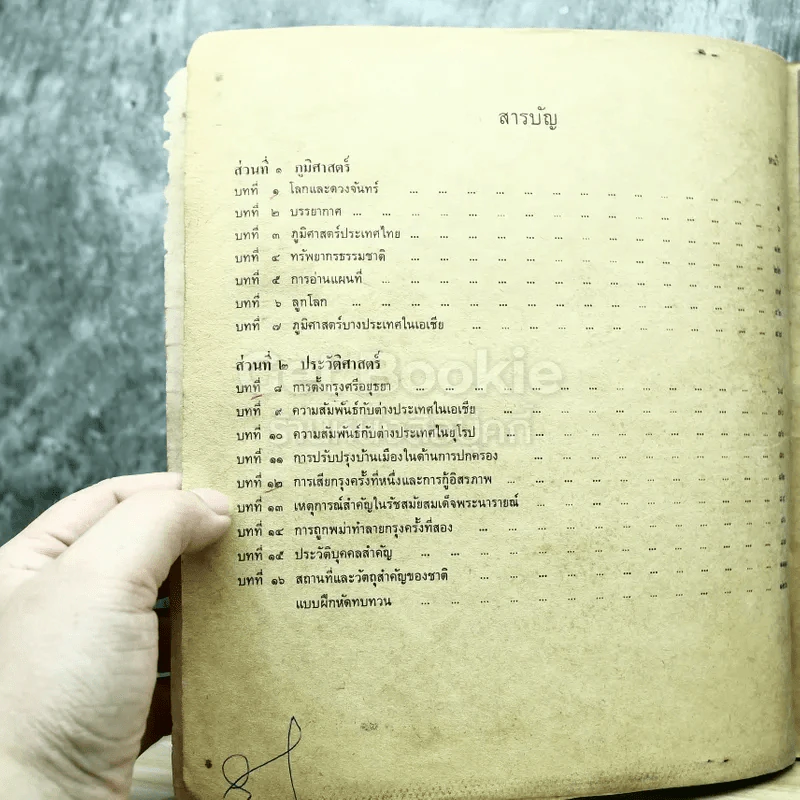 สารบัญ
หน้า
ส่วนที่ ๑ ภูมิศาสตร์
บทที่ ๑ โลกและดวงจันทร์ ... ... ... ... ... ... ... ... ... ... ... ... ๑
บทที่ ๒ บรรยากาศ ... ... ... ... ... ... ... ... ... ... ... ... ... ...
บทที่ ๓ ภูมิศาสตร์ประเทศไทย ... ... ... ... ... ... ... ... ... ... ... ...
บทที่ ๔ ทรัพยากรธรรมชาติ ... ... ... ... ... ... ... ... ... ... ... ...
บทที่ ๕ การอ่านแผนที่ ... ... ... ... ... ... ... ... ... ... ... ... ...
บทที่ ๖ ลูกโลก ... ... ... ... ... ... ... ... ... ... ... ... ... ...
บทที่ ๗ ภูมิศาสตร์บางประเทศในเอเชีย ... ... ... ... ... ... ... ... ... ...
ส่วนที่ ๒ ประวัติศาสตร์
บทที่ ๘ การตั้งกรุงศรีอยุธยา ... ... ... ... ... ... ... ... ... ... ... ...
บทที่ ๙ ความสัมพันธ์กับต่างประเทศในเอเชีย ... ... ... ... ... ... ... ... ...
บทที่ ๑๐ ความสัมพันธ์กับต่างประเทศในยุโรป ... ... ... ... ... ... ... ... ...
บทที่ ๑๑ การปรับปรุงบ้านเมืองในด้านการปกครอง ... ... ... ... ... ... ... ...
บทที่ ๑๒ การเสียกรุงครั้งที่หนึ่งและการกู้อิสรภาพ ... ... ... ... ... ... ... ... ...
บทที่ ๑๓ เหตุการณ์สำคัญในรัชสมัยสมเด็จพระนารายณ์ ... ... ... ... ... ... ... ...
บทที่ ๑๔ การถูกพม่าทำลายกรุงครั้งที่สอง ... ... ... ... ... ... ... ... ... ...
บทที่ ๑๕ ประวัติบุคคลสำคัญ ... ... ... ... ... ... ... ... ... ... ... ...
บทที่ ๑๖ สถานที่และวัตถุสำคัญของชาติ ... ... ... ... ... ... ... ... ... ...
แบบฝึกหัดทบทวน ... ... ... ... ... ... ... ... ... ... ... ...